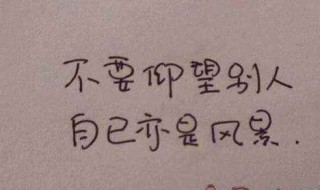 不要仰望别人
自己亦是风景.